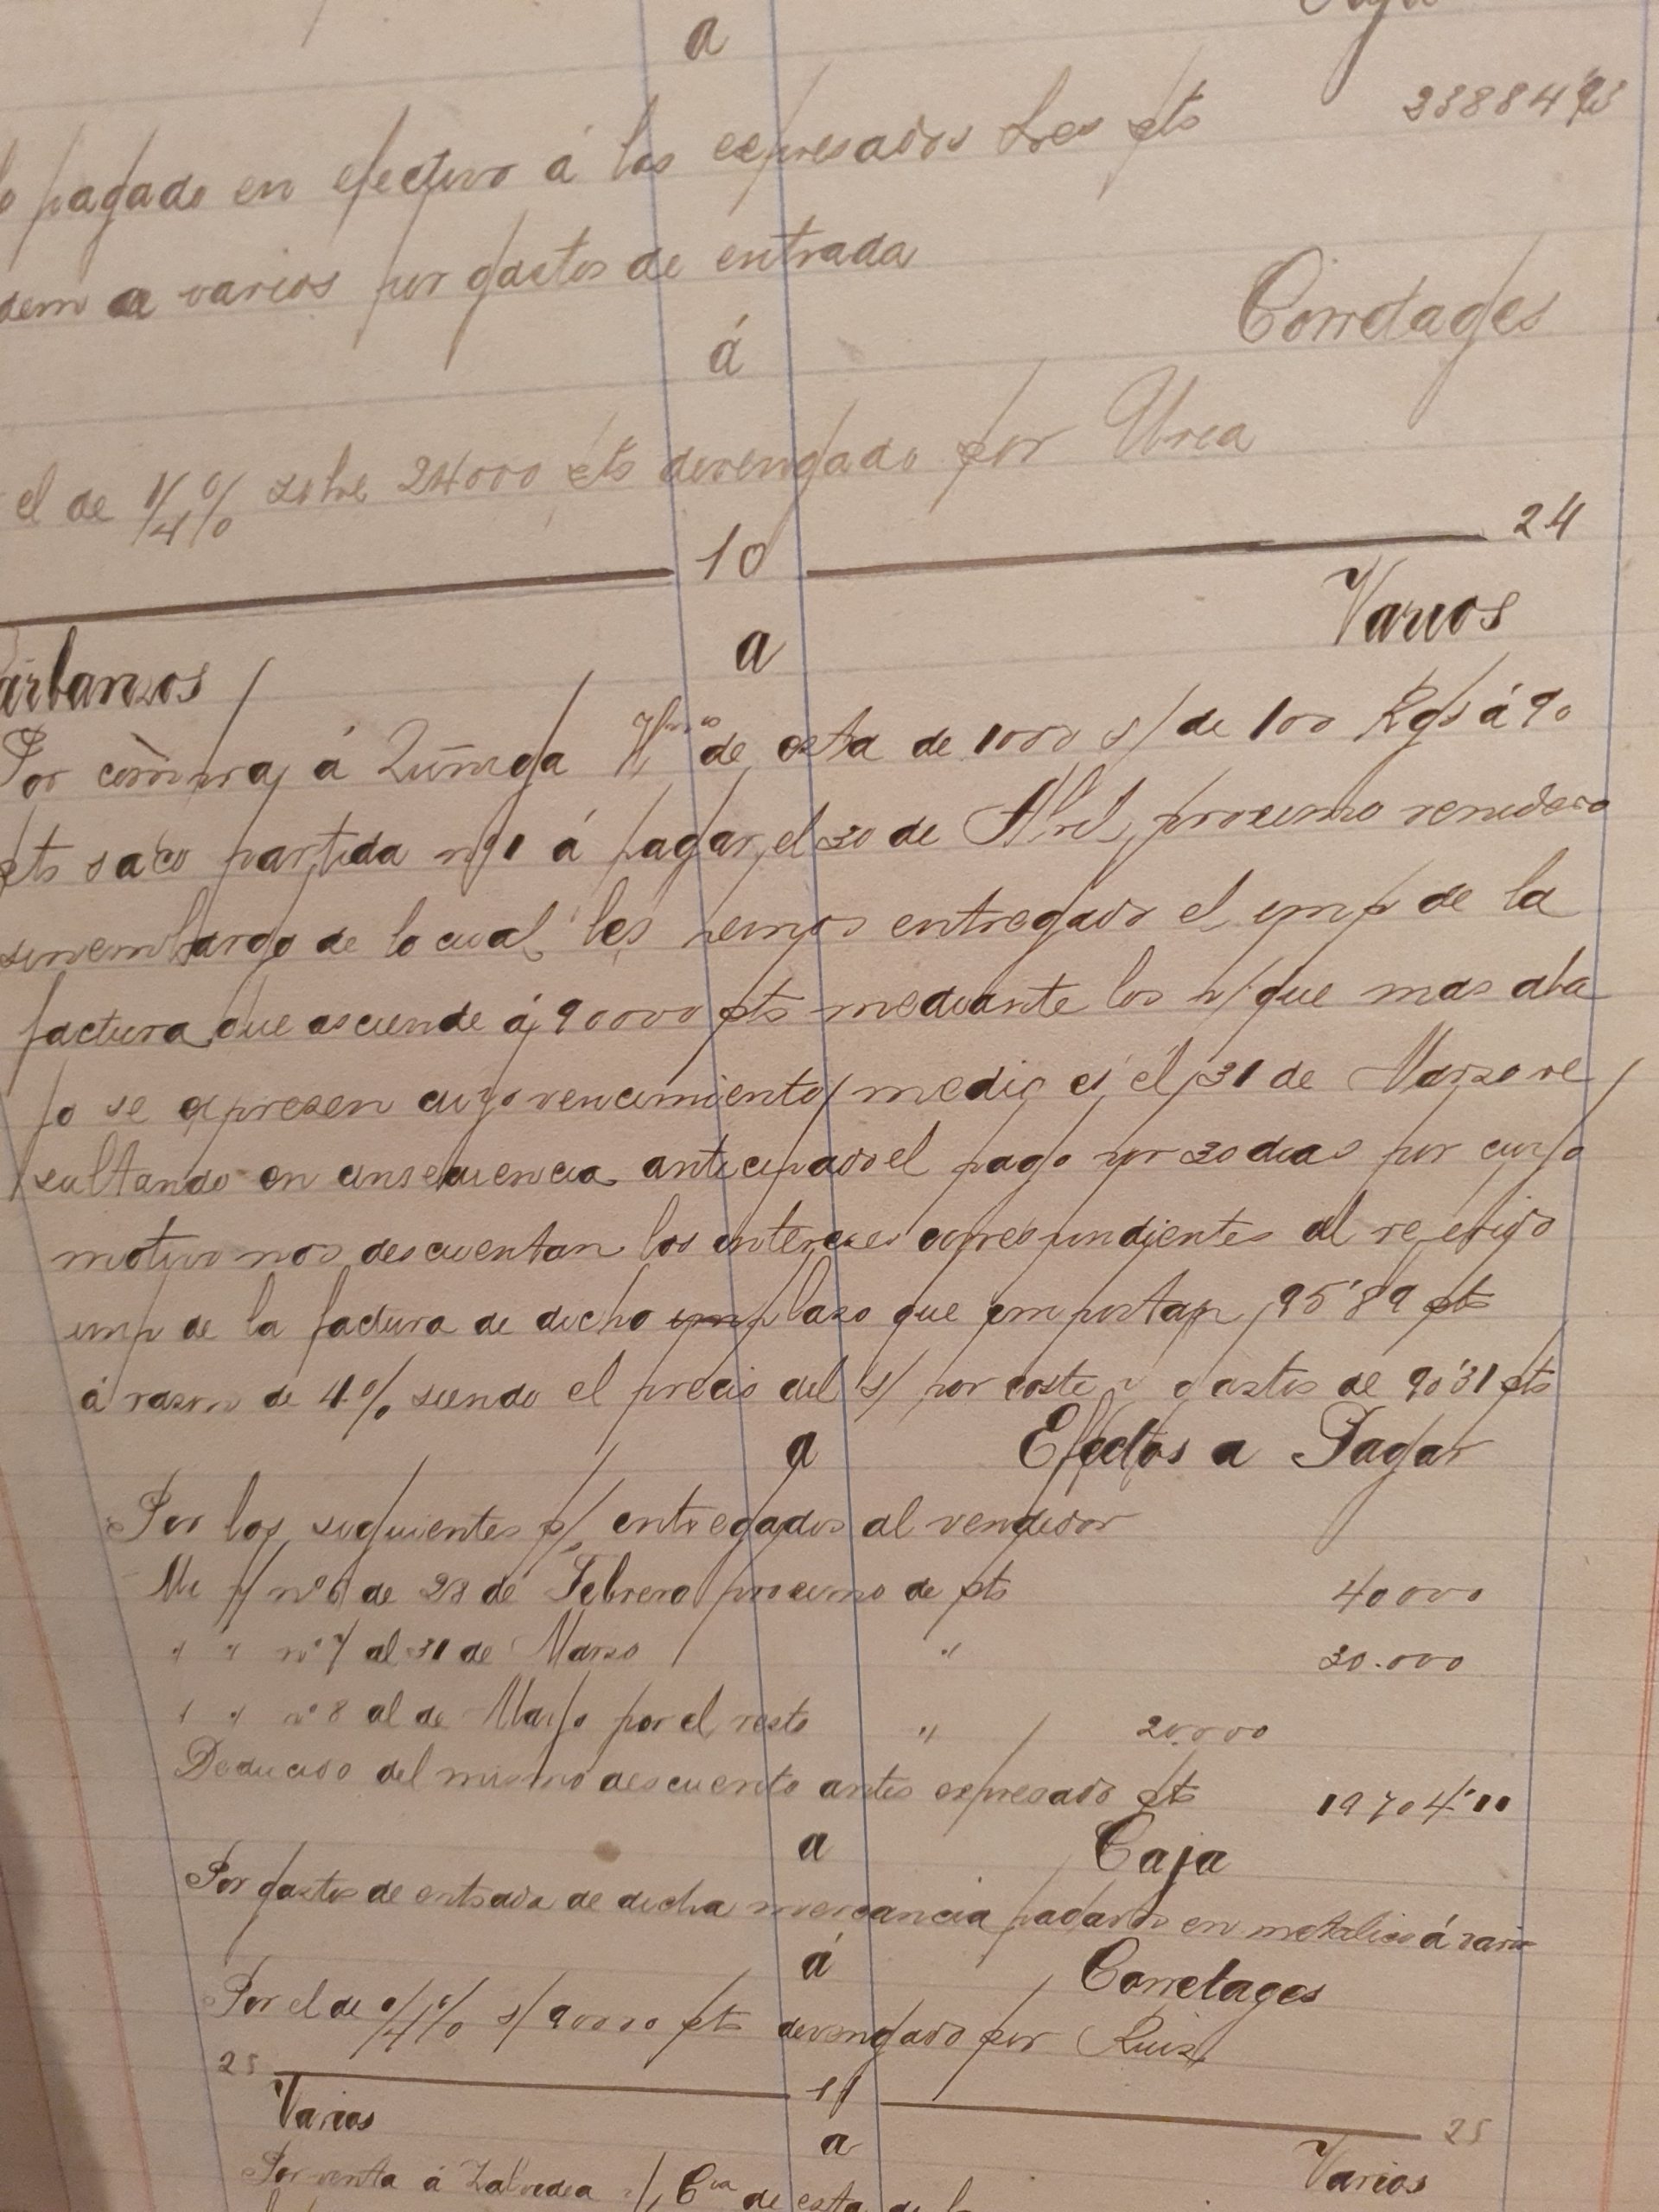 a
pagado en efectivo á los expresados Sres pts 23884'93
idem a varios por gastos de entrada
á Corretages
el de 1/4 % sobre 24000 pts devengado por Urea
10 24
arbanzos a Varios
Por compra á Zúñiga Hnos de esta de 1000 s/ de 100 Kgs á 90
pts saco partida nº 1 á pagar el 30 de Abril proximo venidero
sinembargo de lo cual les hemos entregado el imp de la
factura que asciende á 90000 pts mediante los p/ que mas aba
jo se expresen cuyo vencimiento medio es el 31 de Marzo re
sultando en consecuencia anticipado el pago por 30 dias por cuyo
motivo nos descuentan los intereses correspondientes al referido
imp de la factura de dicho plazo que importan 95'89 pts
á razon de 4 % siendo el precio del s/ por coste y gastos de 90'31 pts
a Efectos a Pagar
Por los siguientes p/ entregados al vendedor
Mi p/ nº 6 de 28 de Febrero proximo de pts 40000
" " nº 7 al 31 de Marzo " 30.000
" " nº 8 al de Mayo por el resto " 20.000
Deducido del mismo descuento antes expresado pts 19704'11
a Caja
Por gastos de entrada de dicha mercancia pagados en metalico á varios
á Corretages
Por el de 1/4 % s/ 90000 pts devengado por Ruiz
25 11 25
Varios a Varios
Por venta á Zalvidea y Cia de esta de